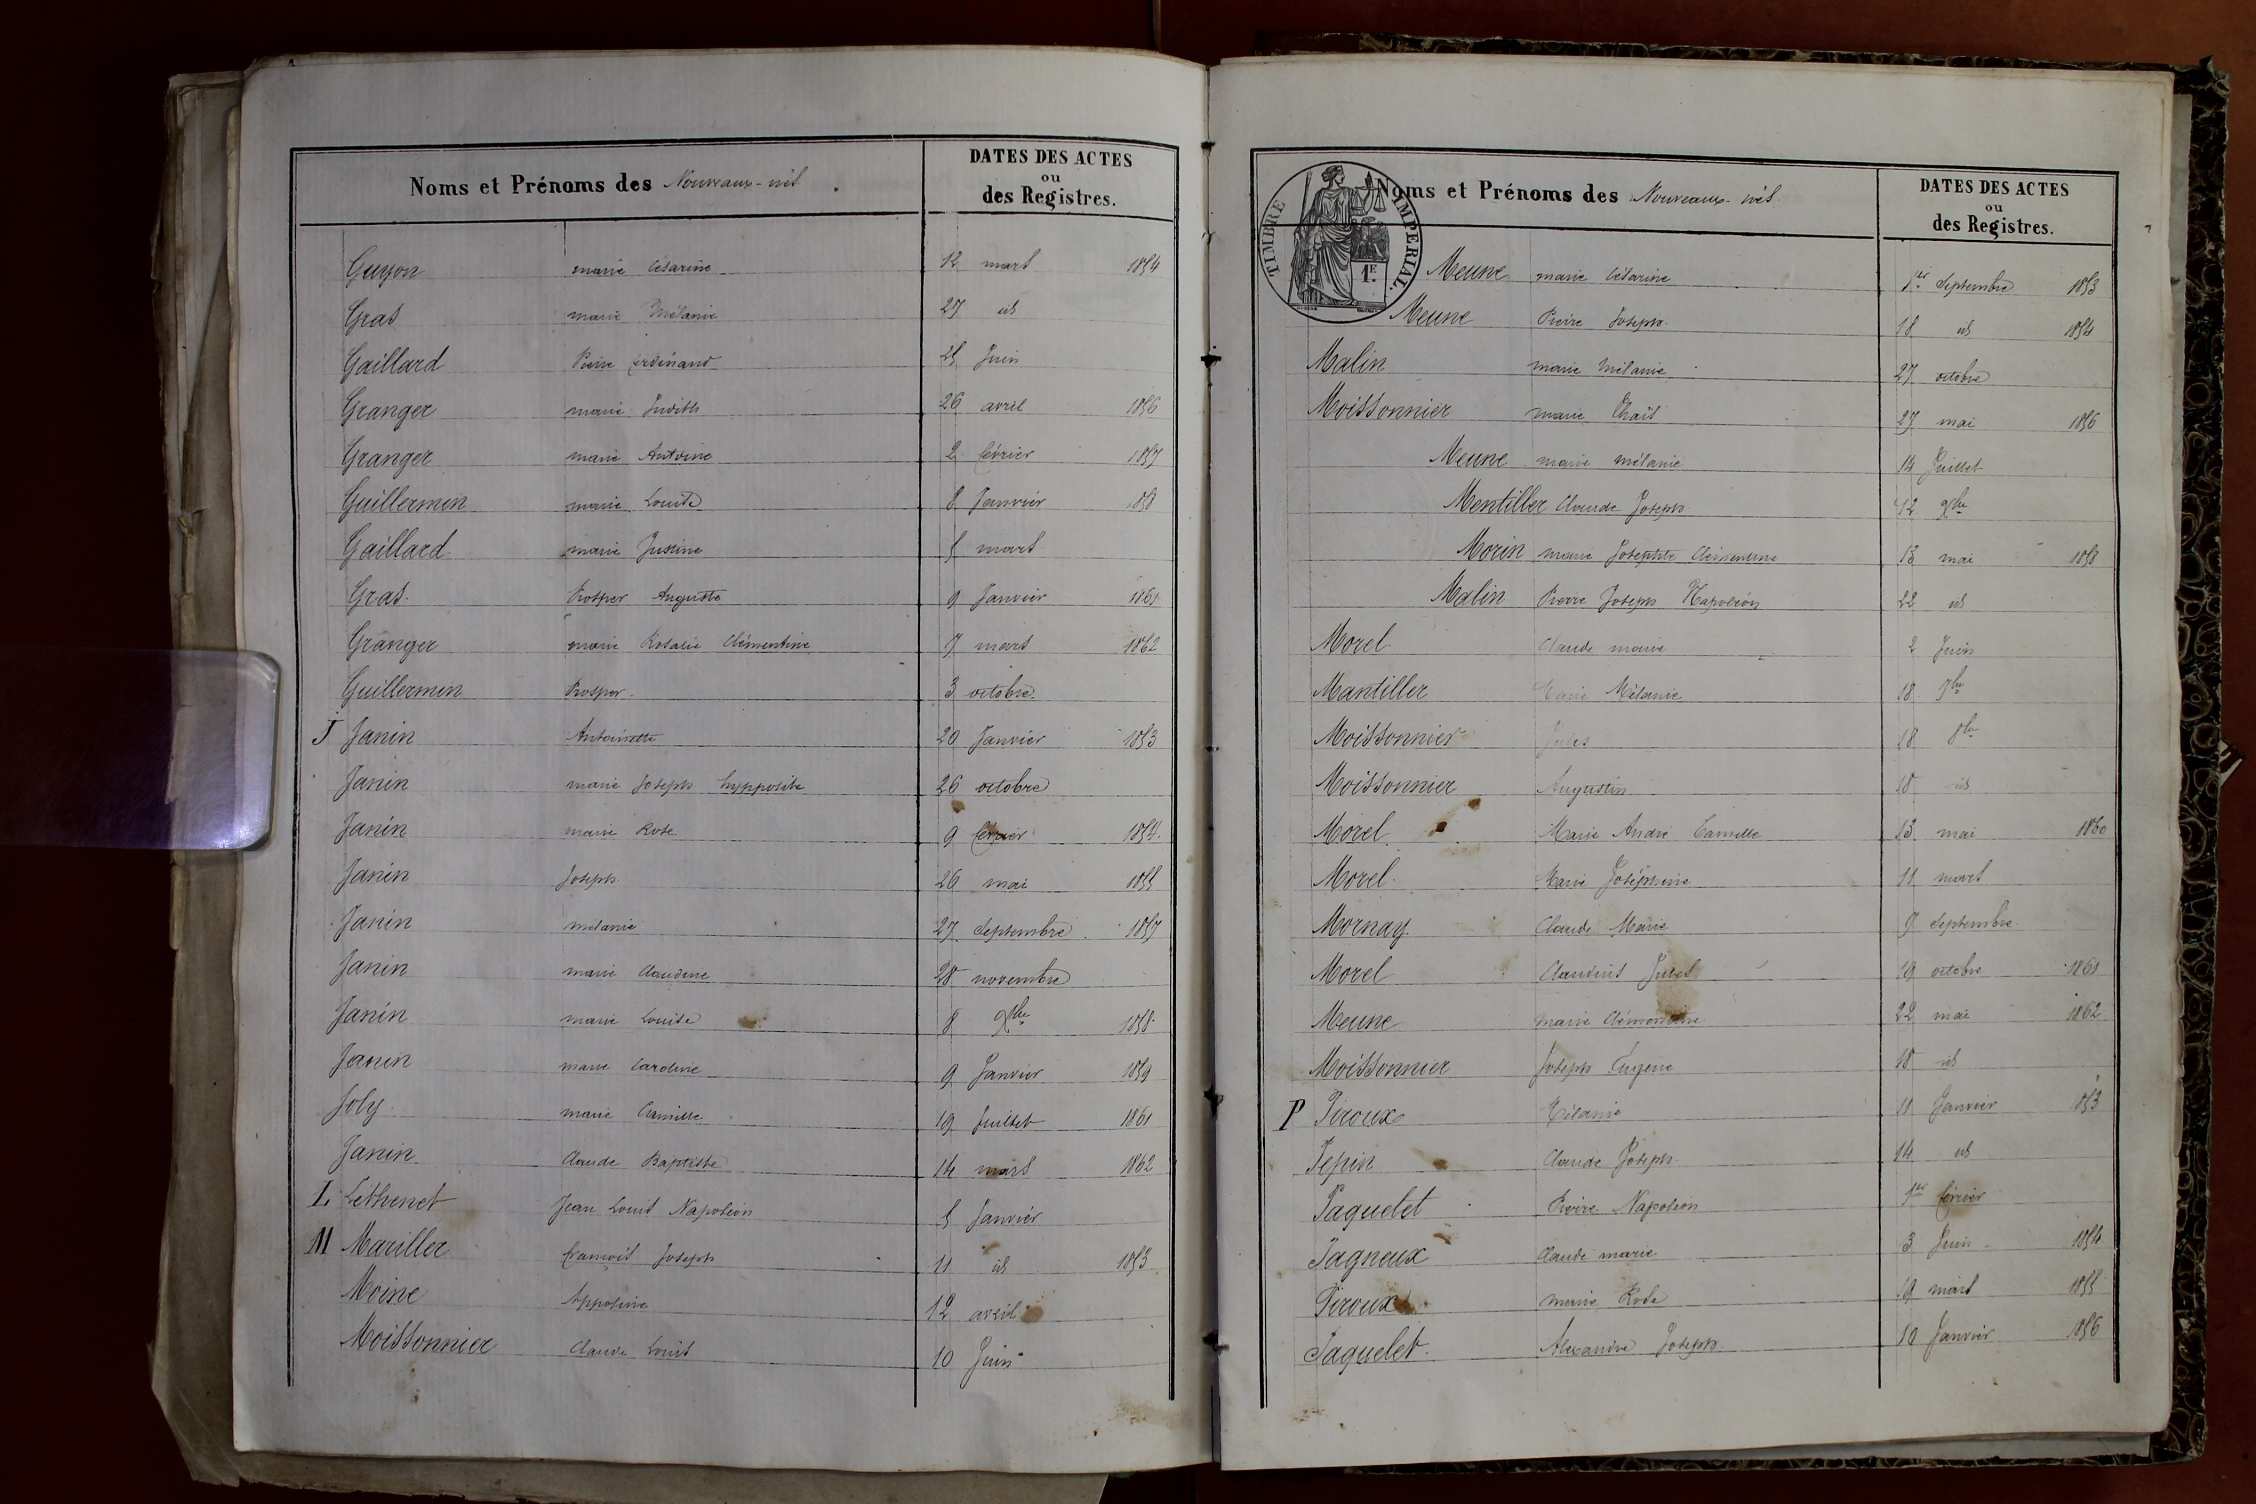 Noms et Prénoms des Nouveaux-nés.
DATES DES ACTES
ou
des Registres.
Guyon marie Césarine 12 mars 1854
Gras marie Mélanie 27 id
Gaillard Pierre ferdinand 25 Juin
Granger marie Judith 26 avril 1856
Granger marie Antoine 2 février 1857
Guillermin marie Louise 8 Janvier 1858
Gaillard marie Justine 5 mars
Gras. Prosper Auguste 9 Janvier 1861
Granger marie Rosalie Clémentine 7 mars 1862
Guillermin Prosper. 3 octobre.
J Janin Antoinette 20 Janvier 1853
Janin marie Joseph hyppolite 26 octobre
Janin marie Rose 9 février 1854.
Janin Joseph 26 mai 1855
Janin mélanie 27 Septembre 1857
Janin marie Claudine 28 novembre
Janin marie Louise 8 Xbre 1858.
Janin marie Caroline 9 Janvier 1859
Joly marie Camille 19 Juillet 1861
Janin Claude Baptiste 14 mars 1862
L Léthenet Jean Louis Napoléon 5 Janvier
M Mariller francois Joseph 11 id 1853
Moine Appoline 12 avril
Moissonnier Claude Louis 10 Juin
TIMBRE IMPERIAL.
1E.
Noms et Prénoms des Nouveaux-nés.
DATES DES ACTES
ou
des Registres.
Meune marie Césarine 1er Septembre 1853
Meune Pierre Joseph. 18 id 1854
Malin marie Mélanie 27 octobre
Moissonnier marie Thaïs 27 mai 1856
Meune marie mélanie 14 Juillet
Mentiller Claude Joseph 12 Xbre
Morin marie Josephte Clémentine 13 mai 1858
Malin Pierre Joseph Napoléon 22 id
Morel Claude marie 2 Juin
Mantiller Marie Mélanie 18 7bre
Moissonnier Jules 18 8bre
Moissonnier Augustin 18 id
Morel Marie André Camille 13 mai 1860
Morel. Marie Joséphine 11 mars
Mornay Claude Marie 9 Septembre.
Morel Claudius Jules 19 octobre 1861
Meune marie Clémentine 22 mai 1862
Moissonnier Joseph Eugène 18 id
P Piroux Mélanie 11 Janvier 1853
Pepin Claude Joseph 14 id
Paquelet Pierre Napoléon 1er février
Pagneux Claude marie 3 Juin 1854
Piroux marie Rose 19 mars 1855
Paquelet. Alexandre Joseph. 10 Janvier 1856